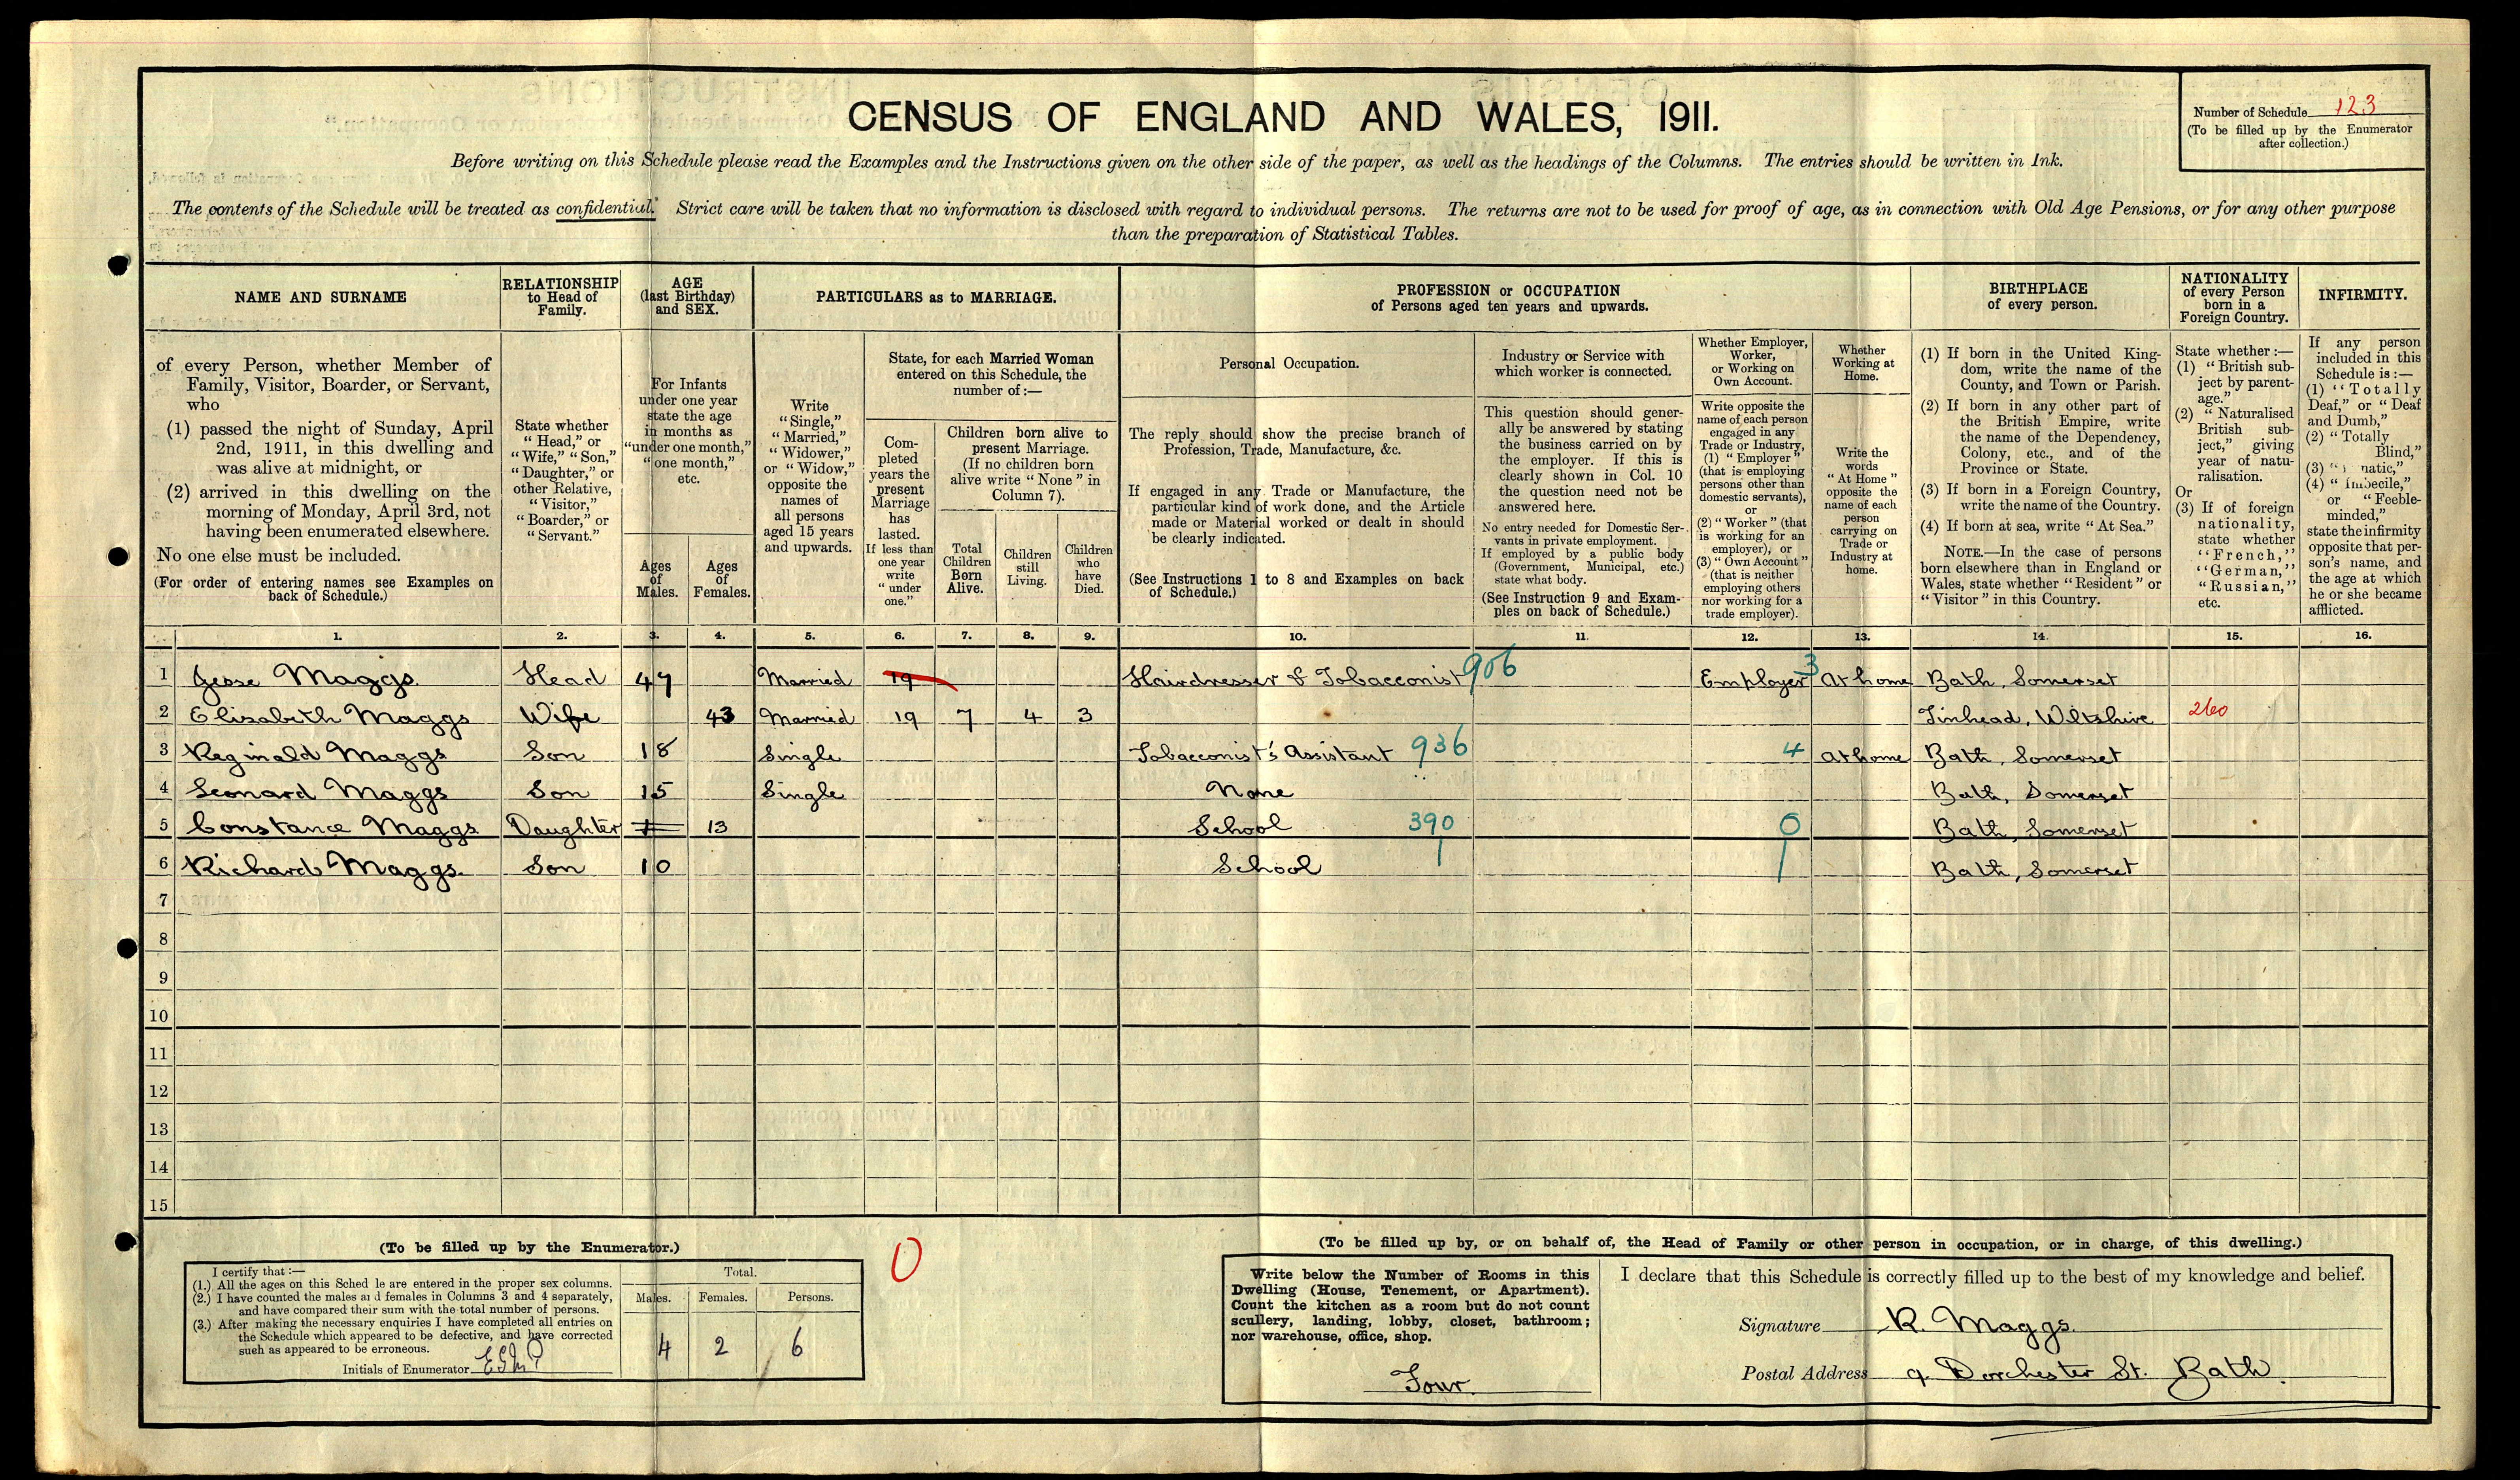 CENSUS OF ENGLAND AND WALES, 1911.
Number of Schedule 123
(To be filled up by the Enumerator
after collection.)
Before writing on this Schedule please read the Examples and the Instructions given on the other side of the paper, as well as the headings of the Columns. The entries should be written in Ink.
The contents of the Schedule will be treated as confidential. Strict care will be taken that no information is disclosed with regard to individual persons. The returns are not to be used for proof of age, as in connection with Old Age Pensions, or for any other purpose
than the preparation of Statistical Tables.
NAME AND SURNAME
of every Person, whether Member of
Family, Visitor, Boarder, or Servant,
who
(1) passed the night of Sunday, April
2nd, 1911, in this dwelling and
was alive at midnight, or
(2) arrived in this dwelling on the
morning of Monday, April 3rd, not
having been enumerated elsewhere.
No one else must be included.
(For order of entering names see Examples on
back of Schedule.)
RELATIONSHIP
to Head of
Family.
State whether
"Head," or
"Wife," "Son,"
"Daughter," or
other Relative,
"Visitor,"
"Boarder," or
"Servant."
AGE
(last Birthday)
and SEX.
For Infants
under one year
state the age
in months as
"under one month,"
"one month,"
etc.
Ages
of
Males.
Ages
of
Females.
PARTICULARS as to MARRIAGE.
Write
"Single,"
"Married,"
"Widower,"
or "Widow,"
opposite the
names of
all persons
aged 15 years
and upwards.
State, for each Married Woman
entered on this Schedule, the
number of:—
Com-
pleted
years the
present
Marriage
has
lasted.
If less than
one year
write
"under
one."
Children born alive to
present Marriage.
(If no children born
alive write "None" in
Column 7).
Total
Children
Born
Alive.
Children
still
Living.
Children
who
have
Died.
PROFESSION or OCCUPATION
of Persons aged ten years and upwards.
Personal Occupation.
The reply should show the precise branch of
Profession, Trade, Manufacture, &c.
If engaged in any Trade or Manufacture, the
particular kind of work done, and the Article
made or Material worked or dealt in should
be clearly indicated.
(See Instructions 1 to 8 and Examples on back
of Schedule.)
Industry or Service with
which worker is connected.
This question should gener-
ally be answered by stating
the business carried on by
the employer. If this is
clearly shown in Col. 10
the question need not be
answered here.
No entry needed for Domestic Ser-
vants in private employment.
If employed by a public body
(Government, Municipal, etc.)
state what body.
(See Instruction 9 and Exam-
ples on back of Schedule.)
Whether Employer,
Worker,
or Working on
Own Account.
Write opposite the
name of each person
engaged in any
Trade or Industry,
(1) "Employer"
(that is employing
persons other than
domestic servants),
or
(2) "Worker" (that
is working for an
employer), or
(3) "Own Account"
(that is neither
employing others
nor working for a
trade employer).
Whether
Working at
Home.
Write the
words
"At Home"
opposite the
name of each
person
carrying on
Trade or
Industry at
home.
BIRTHPLACE
of every person.
(1) If born in the United King-
dom, write the name of the
County, and Town or Parish.
(2) If born in any other part of
the British Empire, write
the name of the Dependency,
Colony, etc., and of the
Province or State.
(3) If born in a Foreign Country,
write the name of the Country.
(4) If born at sea, write "At Sea."
NOTE.—In the case of persons
born elsewhere than in England or
Wales, state whether "Resident" or
"Visitor" in this Country.
NATIONALITY
of every Person
born in a
Foreign Country.
State whether:—
(1) "British sub-
ject by parent-
age."
(2) "Naturalised
British sub-
ject," giving
year of natu-
ralisation.
Or
(3) If of foreign
nationality,
state whether
"French,"
"German,"
"Russian,"
etc.
INFIRMITY.
If any person
included in this
Schedule is:—
(1) "Totally
Deaf," or "Deaf
and Dumb,"
(2) "Totally
Blind,"
(3) " natic,"
(4) "Imbecile,"
or "Feeble-
minded,"
state the infirmity
opposite that per-
son's name, and
the age at which
he or she became
afflicted.
1. 2. 3. 4. 5. 6. 7. 8. 9. 10. 11. 12. 13. 14. 15. 16.
1 Jesse Maggs Head 47 Married 19 Hairdresser & Tobacconist 906 Employer 3 At home Bath, Somerset
2 Elizabeth Maggs Wife 43 Married 19 7 4 3 Tinhead, Wiltshire 260
3 Reginald Maggs Son 18 Single Tobacconist's Assistant 936 4 At home Bath, Somerset
4 Leonard Maggs Son 15 Single None Bath, Somerset
5 Constance Maggs Daughter 13 School 390 0 Bath, Somerset
6 Richard Maggs. Son 10 School Bath, Somerset
7
8
9
10
11
12
13
14
15
(To be filled up by the Enumerator.)
I certify that:—
(1.) All the ages on this Sched le are entered in the proper sex columns.
(2.) I have counted the males and females in Columns 3 and 4 separately,
and have compared their sum with the total number of persons.
(3.) After making the necessary enquiries I have completed all entries on
the Schedule which appeared to be defective, and have corrected
such as appeared to be erroneous.
Initials of Enumerator
Total.
Males. Females. Persons.
4 2 6
0
(To be filled up by, or on behalf of, the Head of Family or other person in occupation, or in charge, of this dwelling.)
Write below the Number of Rooms in this
Dwelling (House, Tenement, or Apartment).
Count the kitchen as a room but do not count
scullery, landing, lobby, closet, bathroom;
nor warehouse, office, shop.
Four.
I declare that this Schedule is correctly filled up to the best of my knowledge and belief.
Signature R. Maggs.
Postal Address 9. Dorchester St. Bath.